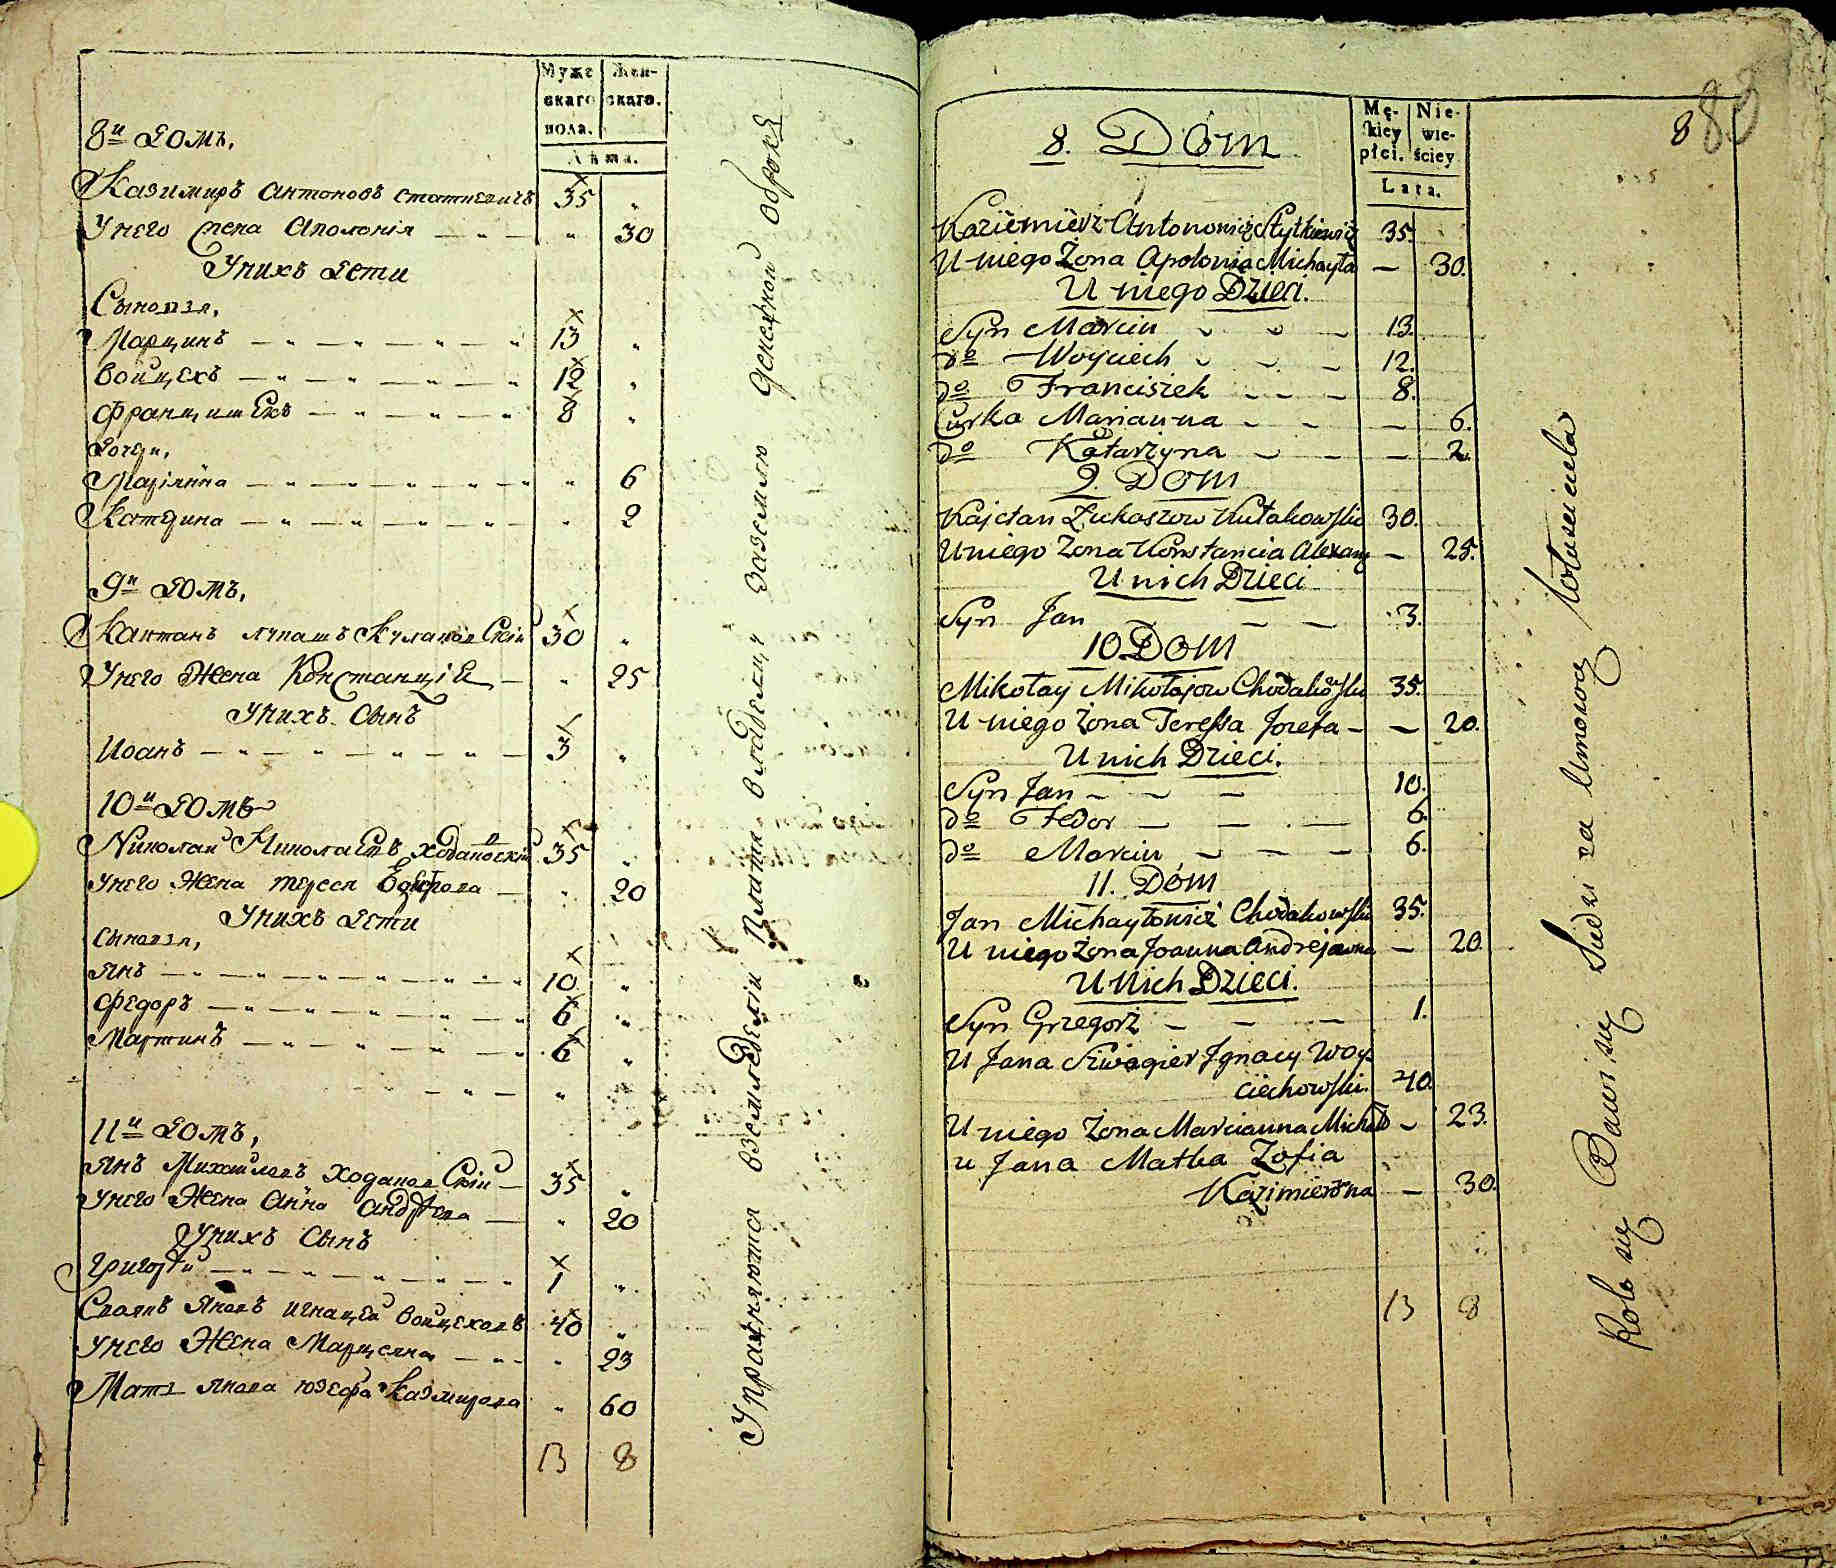 Муже
скаго
пола.
Жен-
скаго.
Лѣта.
8й Домъ,
Казимиръ Антоновъ Статкевичъ 35 "
Унего жена Аполонія — " — " 30
Унихъ дети
Сыновья,
Марцинъ — " — " — " — " 13 "
Войцехъ — " — " — " — " 12 "
Францишекъ — " — " — " 8 "
Дочери,
Маріянна — " — " — " — " " 6
Катерина — " — " — " — " " 2
9й Домъ,
Каитанъ Лукашъ Кулаковскій 30 "
Унего Жена Констанція — " 25
Унихъ Сынъ
Иоанъ — " — " — " — " — 3 "
10й Домъ
Николай Николаевъ Ходаковскій 35 "
Унего Жена Тереса — " 20
Унихъ дети
Сыновья,
Янъ — " — " — " — " — " 10 "
Федоръ — " — " — " — " 6 "
Мартинъ — " — " — " — " 6 "
— " — " "
11й Домъ,
Янъ Михайловъ Ходаковскій — 35 "
Унего Жена Анна Андреева — " 20
Унихъ Сынъ
Григорій — " — " — " — " 1 "
Своякъ Яновъ Игнацей Войцеховъ 40 "
Унего Жена Марцеяна — " — " 23
Мать Янова Юзефа Казмирова " 60
13 8
Упражняются вземледелiи Платя владелцу заземлю денежной оброкъ
8
88
Mę-
skiey
płci.
Nie-
wie-
ściey
Lata.
8. Dom
Kaziemierz Antonowicz Stytkiewicz 35.
U niego Żona Apolonia Michayła — 30.
U niego Dzieci.
Syn Marcin - - - 13.
do Woyciech - - - 12.
do Franciszek - - - 8.
Curka Marianna - - — 6.
do Katarzyna - - — 2.
9. Dom
Kajetan Łukaszow Kułakowski 30.
U niego Żona Konstancia Alexan — 25.
U nich Dzieci
Syn Jan — — — 3.
10 Dom
Mikołay Mikołajow Chodakowski 35.
U niego Żona Teressa Jozefa - — 20.
U nich Dzieci.
Syn Jan - — — 10.
do Fedor — — — 6.
do Marcin - — — 6.
11. Dom
Jan Michayłowicz Chodakowski 35.
U niego Żona Joanna Andrejowna — 20.
U Nich Dzieci.
Syn Grzegorz — — — 1.
U Jana Szwagier Jgnacy Woy-
ciechowski. 40.
U niego Żona Marcianna Michał - 23.
u Jana Matka Zofia
Kazimierowna — 30.
13 8
Rolo się Bawi się Siedzi za Umową własciciela